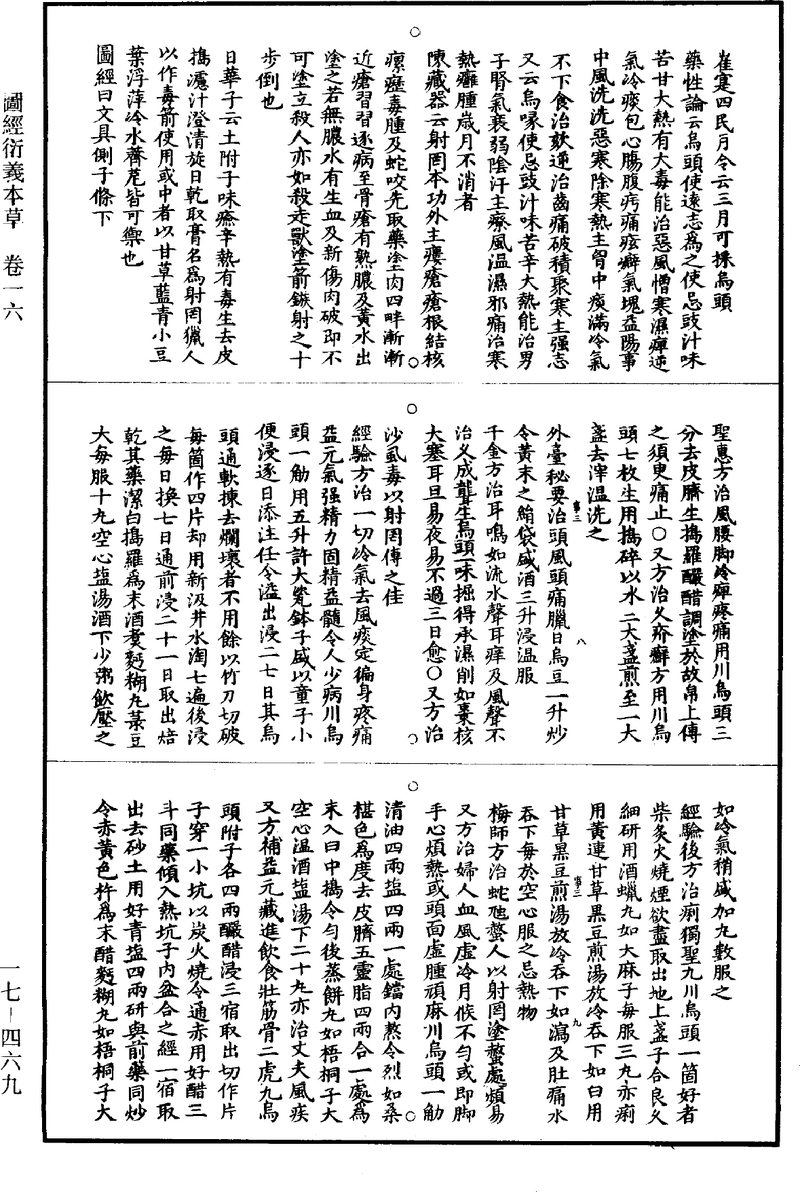 崔寔四民月令云三月可採烏頭
藥性論云烏頭使遠志爲之使忌豉汁味
苦甘大熱有大毒能治惡風憎寒濕痺逆
氣冷痰包心腸腹㽲痛痃癖氣塊益陽事
中風洗洗惡寒除寒熱主胷中痰滿冷氣
不下食治欬逆治齒痛破積聚寒主强志
又云烏喙使忌豉汁味苦辛大熱能治男
子腎氣衰弱陰汗主療風温濕邪痛治寒
熱癰腫歲月不消者
陳藏器云射罔本功外主瘻瘡瘡根結核
瘰癧毒腫及蛇咬先取藥塗肉四畔漸漸
近瘡習習逐病至骨瘡有熱膿及黃水出
塗之若無膿水有生血及新傷肉破即不
可塗立殺人亦如殺走獸塗箭鏃射之十
步倒也
日華子云土附子味㾕辛熱有毒生去皮
搗濾汁澄清旋日乾取膏名爲射罔獵人
以作毒箭使用或中者以甘草藍青小豆
葉浮萍冷水薺苨皆可禦也
圖經曰文具側子條下
聖惠方治風腰脚冷痺疼痛用川烏頭三
分去皮臍生搗羅釅醋調塗於故帛上傅
之須臾痛止〇又方治久疥癬方用川烏
頭七枚生用搗碎以水二大盞煎至一大
盞去滓温洗之
外臺秘要治頭風頭痛臘日烏豆一升炒
令黃末之絹袋盛酒三升浸温服
千金方治耳鳴如流水聲耳痒及風聲不
治久成聾生烏頭一味掘得承濕削如棗核
大塞耳旦易夜易不過三日愈〇又方治
沙虱毒以射罔傅之佳
經驗方治一切冷氣去風痰定徧身疼痛
益元氣强精力固精益髓令人少病川烏
頭一觔用五升許大瓷鉢子盛以童子小
便浸逐日添注任令溢出浸二七日其烏
頭通軟揀去爛壞者不用餘以竹刀切破
每箇作四片却用新汲井水淘七遍後浸
之每日換七日通前浸二十一日取出焙
乾其藥潔白搗羅爲末酒煑麪糊丸菉豆
大每服十九空心塩湯酒下少粥飲壓之
如冷氣稍盛加丸數服之
經驗後方治痢獨聖九川烏頭一箇好者
柴灸火燒煙欲盡取出地上盞子合良久
細研用酒蠟丸如大麻子每服三丸赤痢
用黃連甘草黑豆煎湯放冷吞下如白用
甘草黑豆煎湯放冷吞下如瀉及肚痛水
吞下每於空心服之忌熱物
梅師方治蛇虺螫人以射罔塗螫處頻易
又方治婦人血風虛冷月候不匀或即脚
手心煩熱或頭面虛腫頑麻川烏頭一觔
清油四兩塩四兩一處鐺内熬令烈如桑
椹色爲度去皮臍五靈脂四兩合一處爲
末入臼中搗令匀後蒸餅丸如梧桐子大
空心温酒塩湯下二十丸亦治丈夫風疾
又方補益元藏進飲食壯筋骨二虎丸烏
頭附子各四兩釅醋浸三宿取出切作片
子穿一小坑以炭火燒令通赤用好醋三
斗同藥傾入熱坑子内盆合之經一宿取
出去砂土用好青塩四兩研與前藥同炒
令赤黃色杵爲末醋麪糊丸如梧桐子大
圖經衍義本草　卷一六
一七—四六九